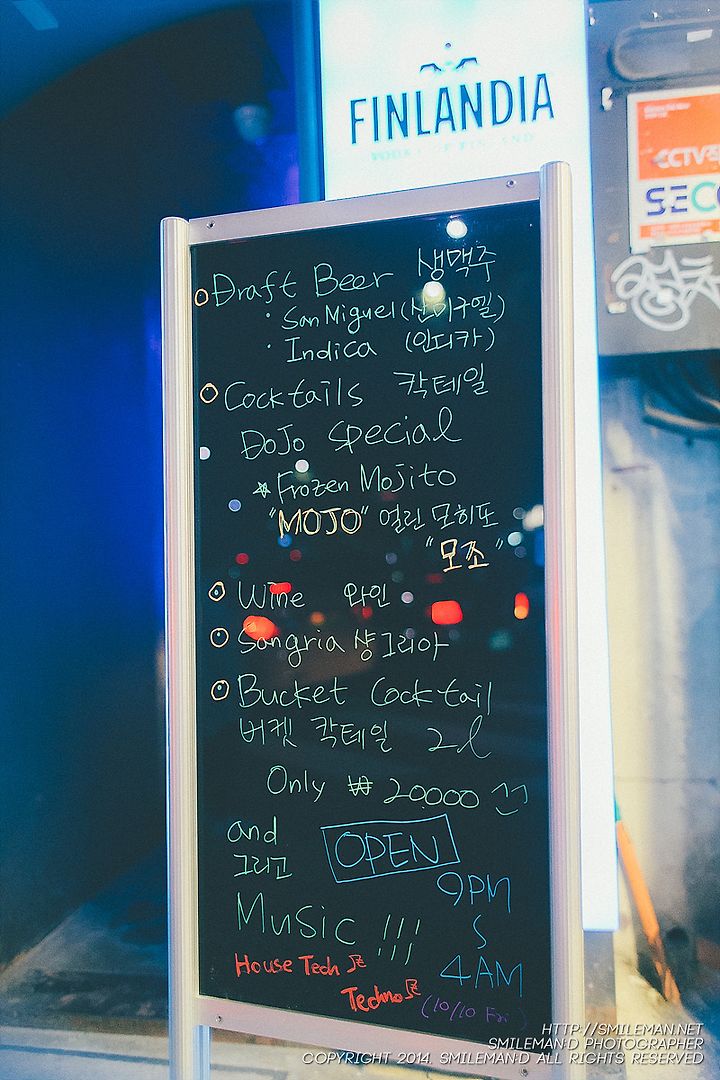 FINLANDIA
CCTV
SECO
Draft Beer 생맥주
· San Miguel (산미구엘)
· Indica (인디카)
Cocktails 칵테일
DoJo Special
☆ Frozen Mojito
"MOJO" 얼린 모히또
"모조"
Wine 와인
Sangria 샹그리아
Bucket Cocktail
버켓 칵테일 2l
Only ₩ 20000
and
그리고
OPEN
9PM
S
4AM
Music !!!
House Tech
Techno
(10/10 Fri)
HTTP://SMILEMAN.NET
SMILEMAN:D PHOTOGRAPHER
COPYRIGHT 2014. SMILEMAN:D ALL RIGHTS RESERVED